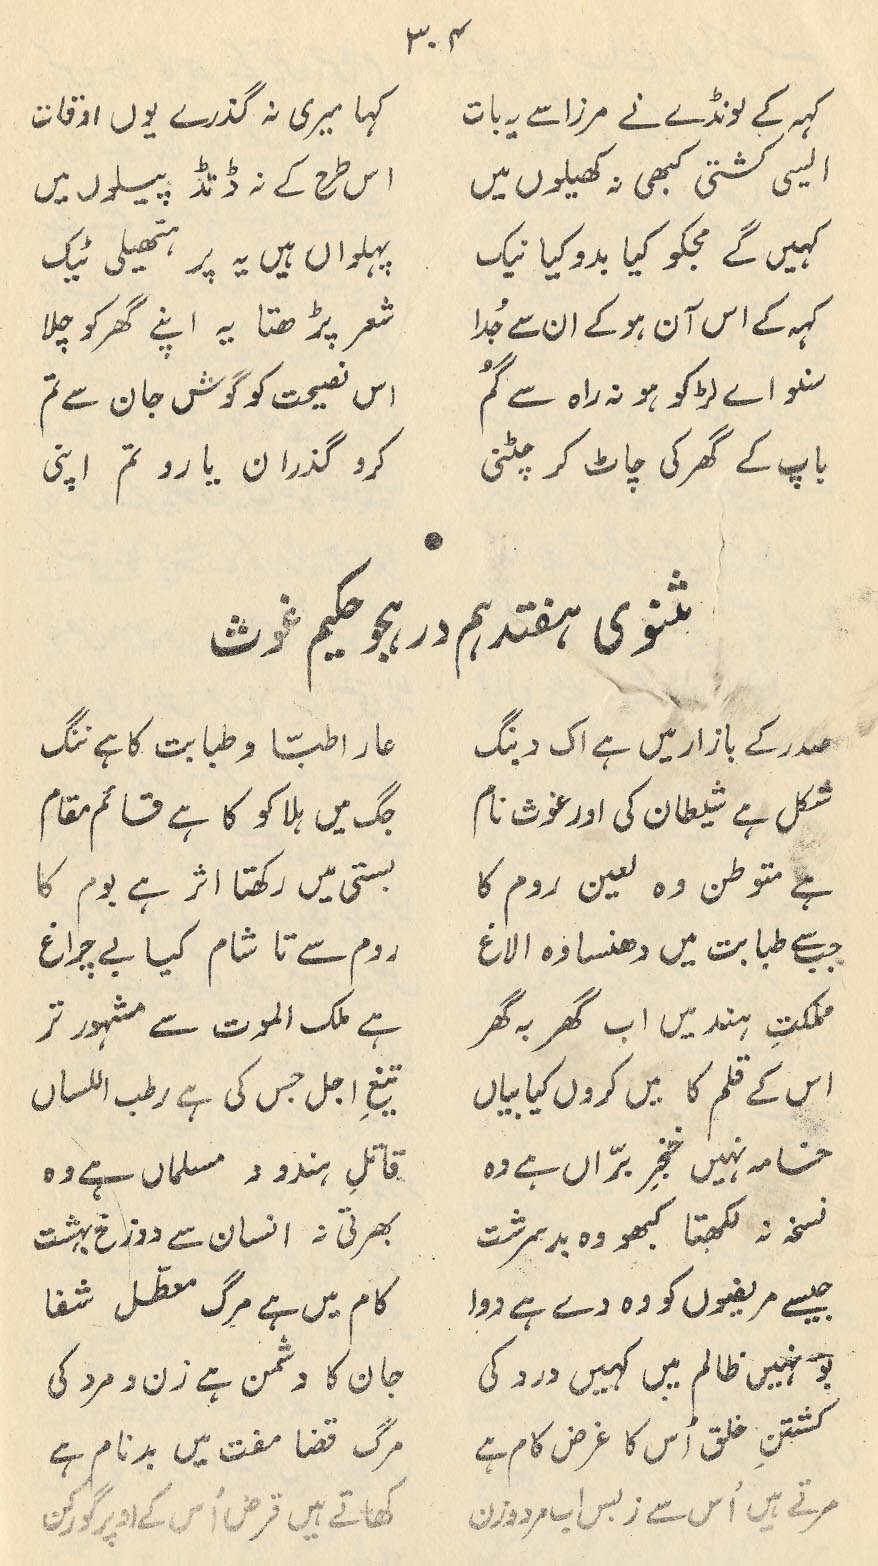 ۳۰۴
کہہ کے لونڈے نے مرزا سے یہ بات کہا میری نہ گذرے یوں اوقات
ایسی کشتی کبھی نہ کھیلوں میں اس طرح کے نہ ڈنڈ پیلوں میں
کہیں گے مجکو کیا بد و کیا نیک پہلواں ہیں یہ پر ہتھیلی ٹیک
کہہ کے اس آن ہو کے ان سے جُدا شعر پڑھتا یہ اپنے گھر کو چلا
سنلو اے لڑکو ہو نہ راہ سے گُم اس نصیحت کو گوش جان سے تم
باپ کے گھر کی چاٹ کر چٹنی کرو گذران یارو تم اپنی
مثنوی ہفتدہم در ہجو حکیم غوث
صدر کے بازار میں ہے اک دبنگ عار اطبّا و طبابت کا ہے ننگ
شکل ہے شیطان کی اور غوث نام جگ میں ہلاکو کا ہے قائم مقام
ہے متوطن وہ لعین روم کا بستی میں رکھتا اثر ہے بوم کا
جب سے طبابت میں دھنسا وہ الاغ روم سے تا شام کیا بے چراغ
مملکتِ ہند میں اب گھر بہ گھر ہے ملک الموت سے مشہور تر
اس کے قلم کا میں کروں کیا بیاں تیغِ اجل جس کی ہے رطب اللساں
خامہ نہیں خنجرِ برّاں ہے وہ قاتلِ ہندو و مسلماں ہے وہ
نسخہ نہ لکھتا کبھو وہ بد سرشت بھرتی نہ انسان سے دوزخ بہشت
جیسے مریضوں کو وہ دے ہے دوا کام میں ہے مرگ معطّل شفا
بو نہیں ظالم میں کہیں درد کی جان کا دشمن ہے زن و مرد کی
کشتنِ خلق اُس کا غرض کام ہے مرگ قضا مفت میں بدنام ہے
مرتے ہیں اُس سے زبس اب مرد و زن کھاتے ہیں قرض اُس کے اوپر گورکن